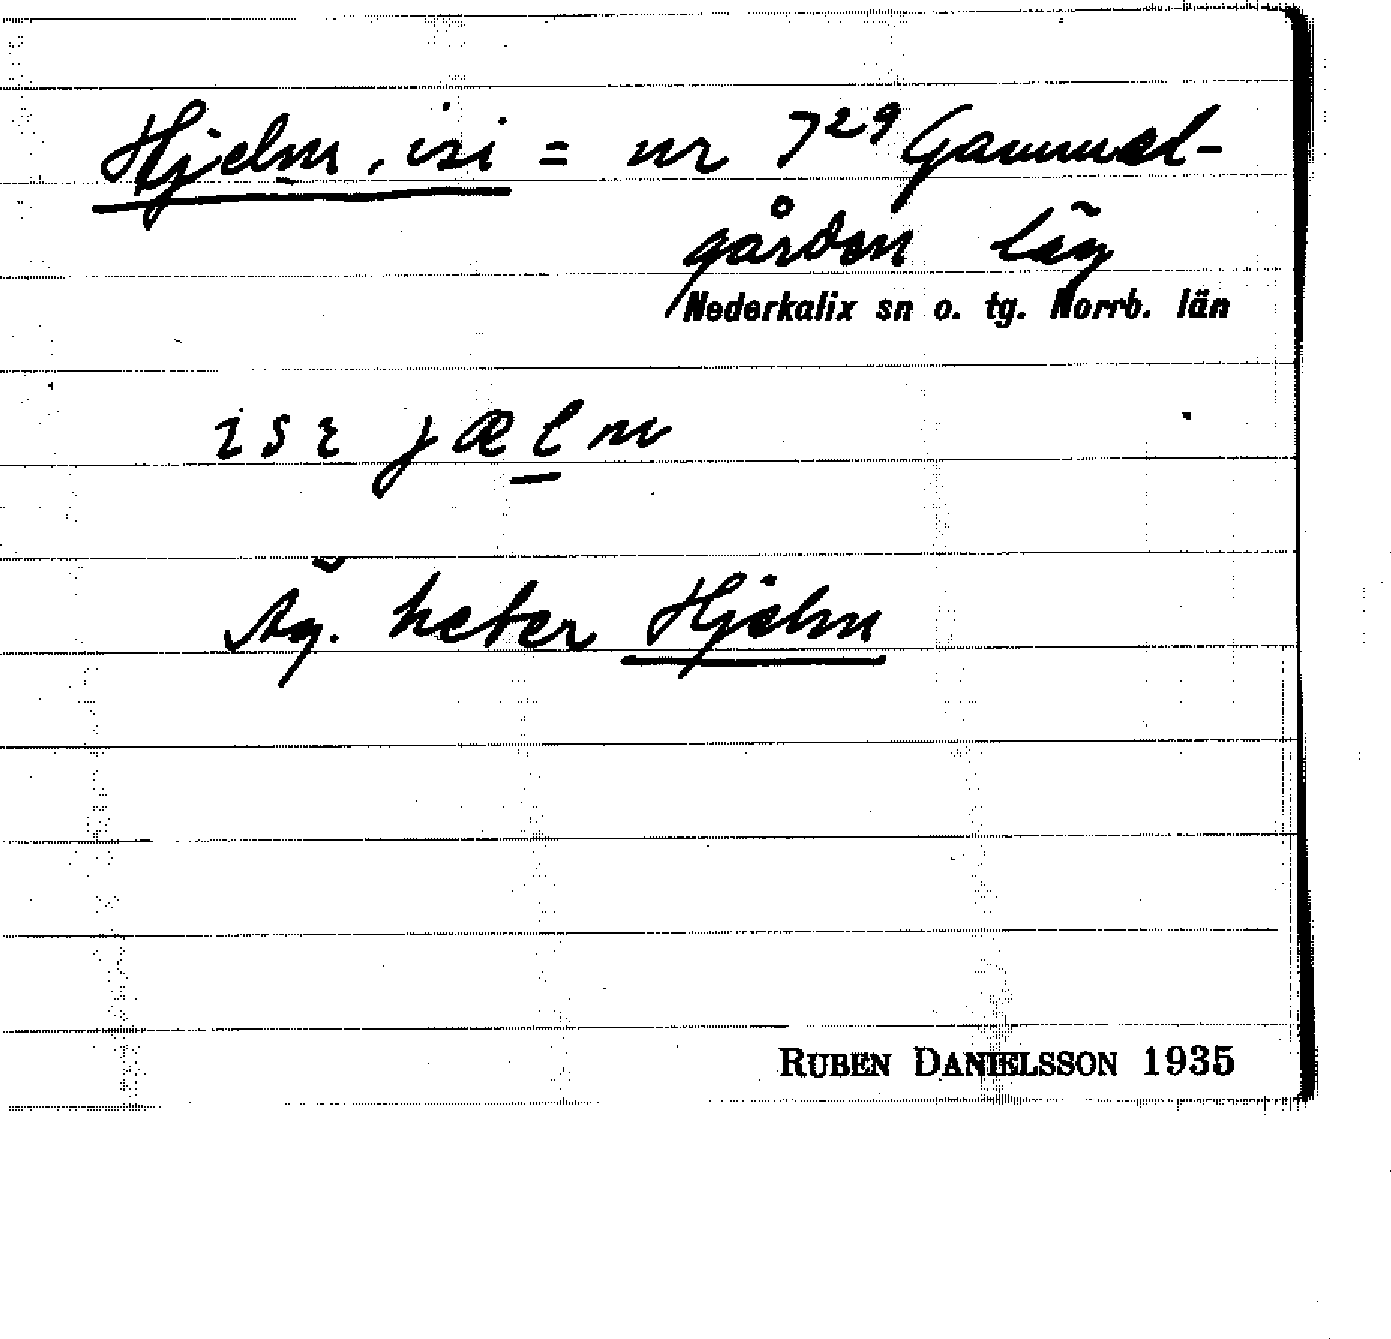 Hjelm, isi = nr 7²⁹ Gammel-
gården läg
Nederkalix sn o. tg. Norrb. län
ısı jælm
Äg. heter Hjelm
RUBEN DANIELSSON 1935